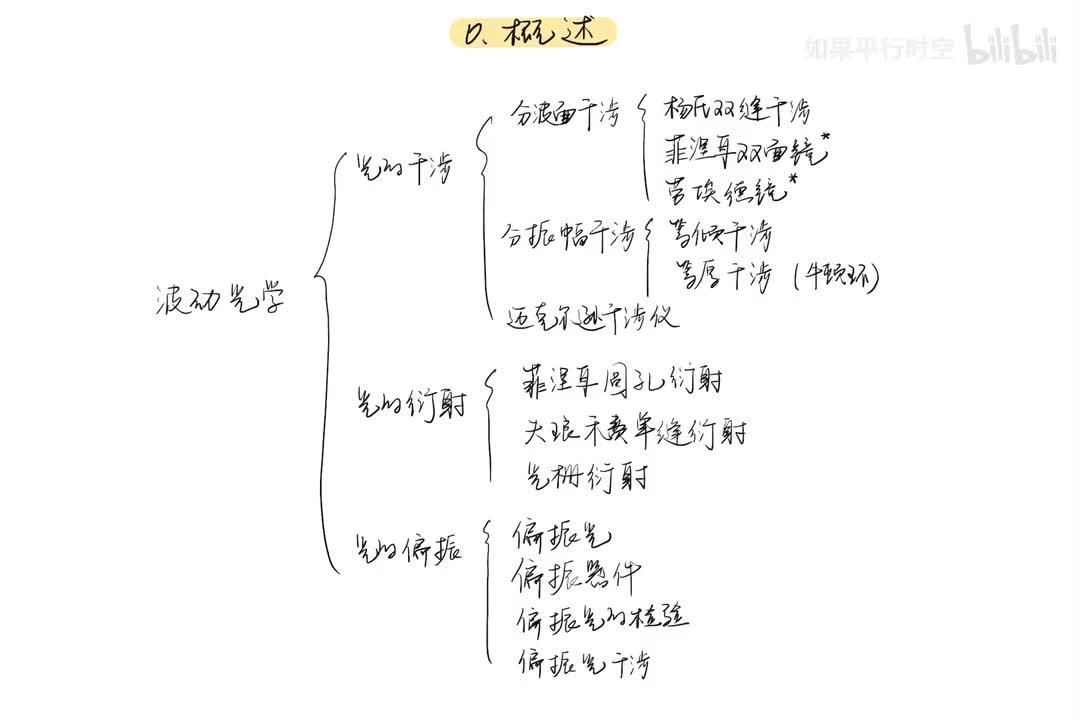 0、概述
如果平行时空 bilibili
波动光学
光的干涉
分波面干涉
杨氏双缝干涉
菲涅耳双面镜*
劳埃德镜*
分振幅干涉
等倾干涉
等厚干涉（牛顿环）
迈克尔逊干涉仪
光的衍射
菲涅耳圆孔衍射
夫琅禾费单缝衍射
光栅衍射
光的偏振
偏振光
偏振器件
偏振光的检验
偏振光干涉